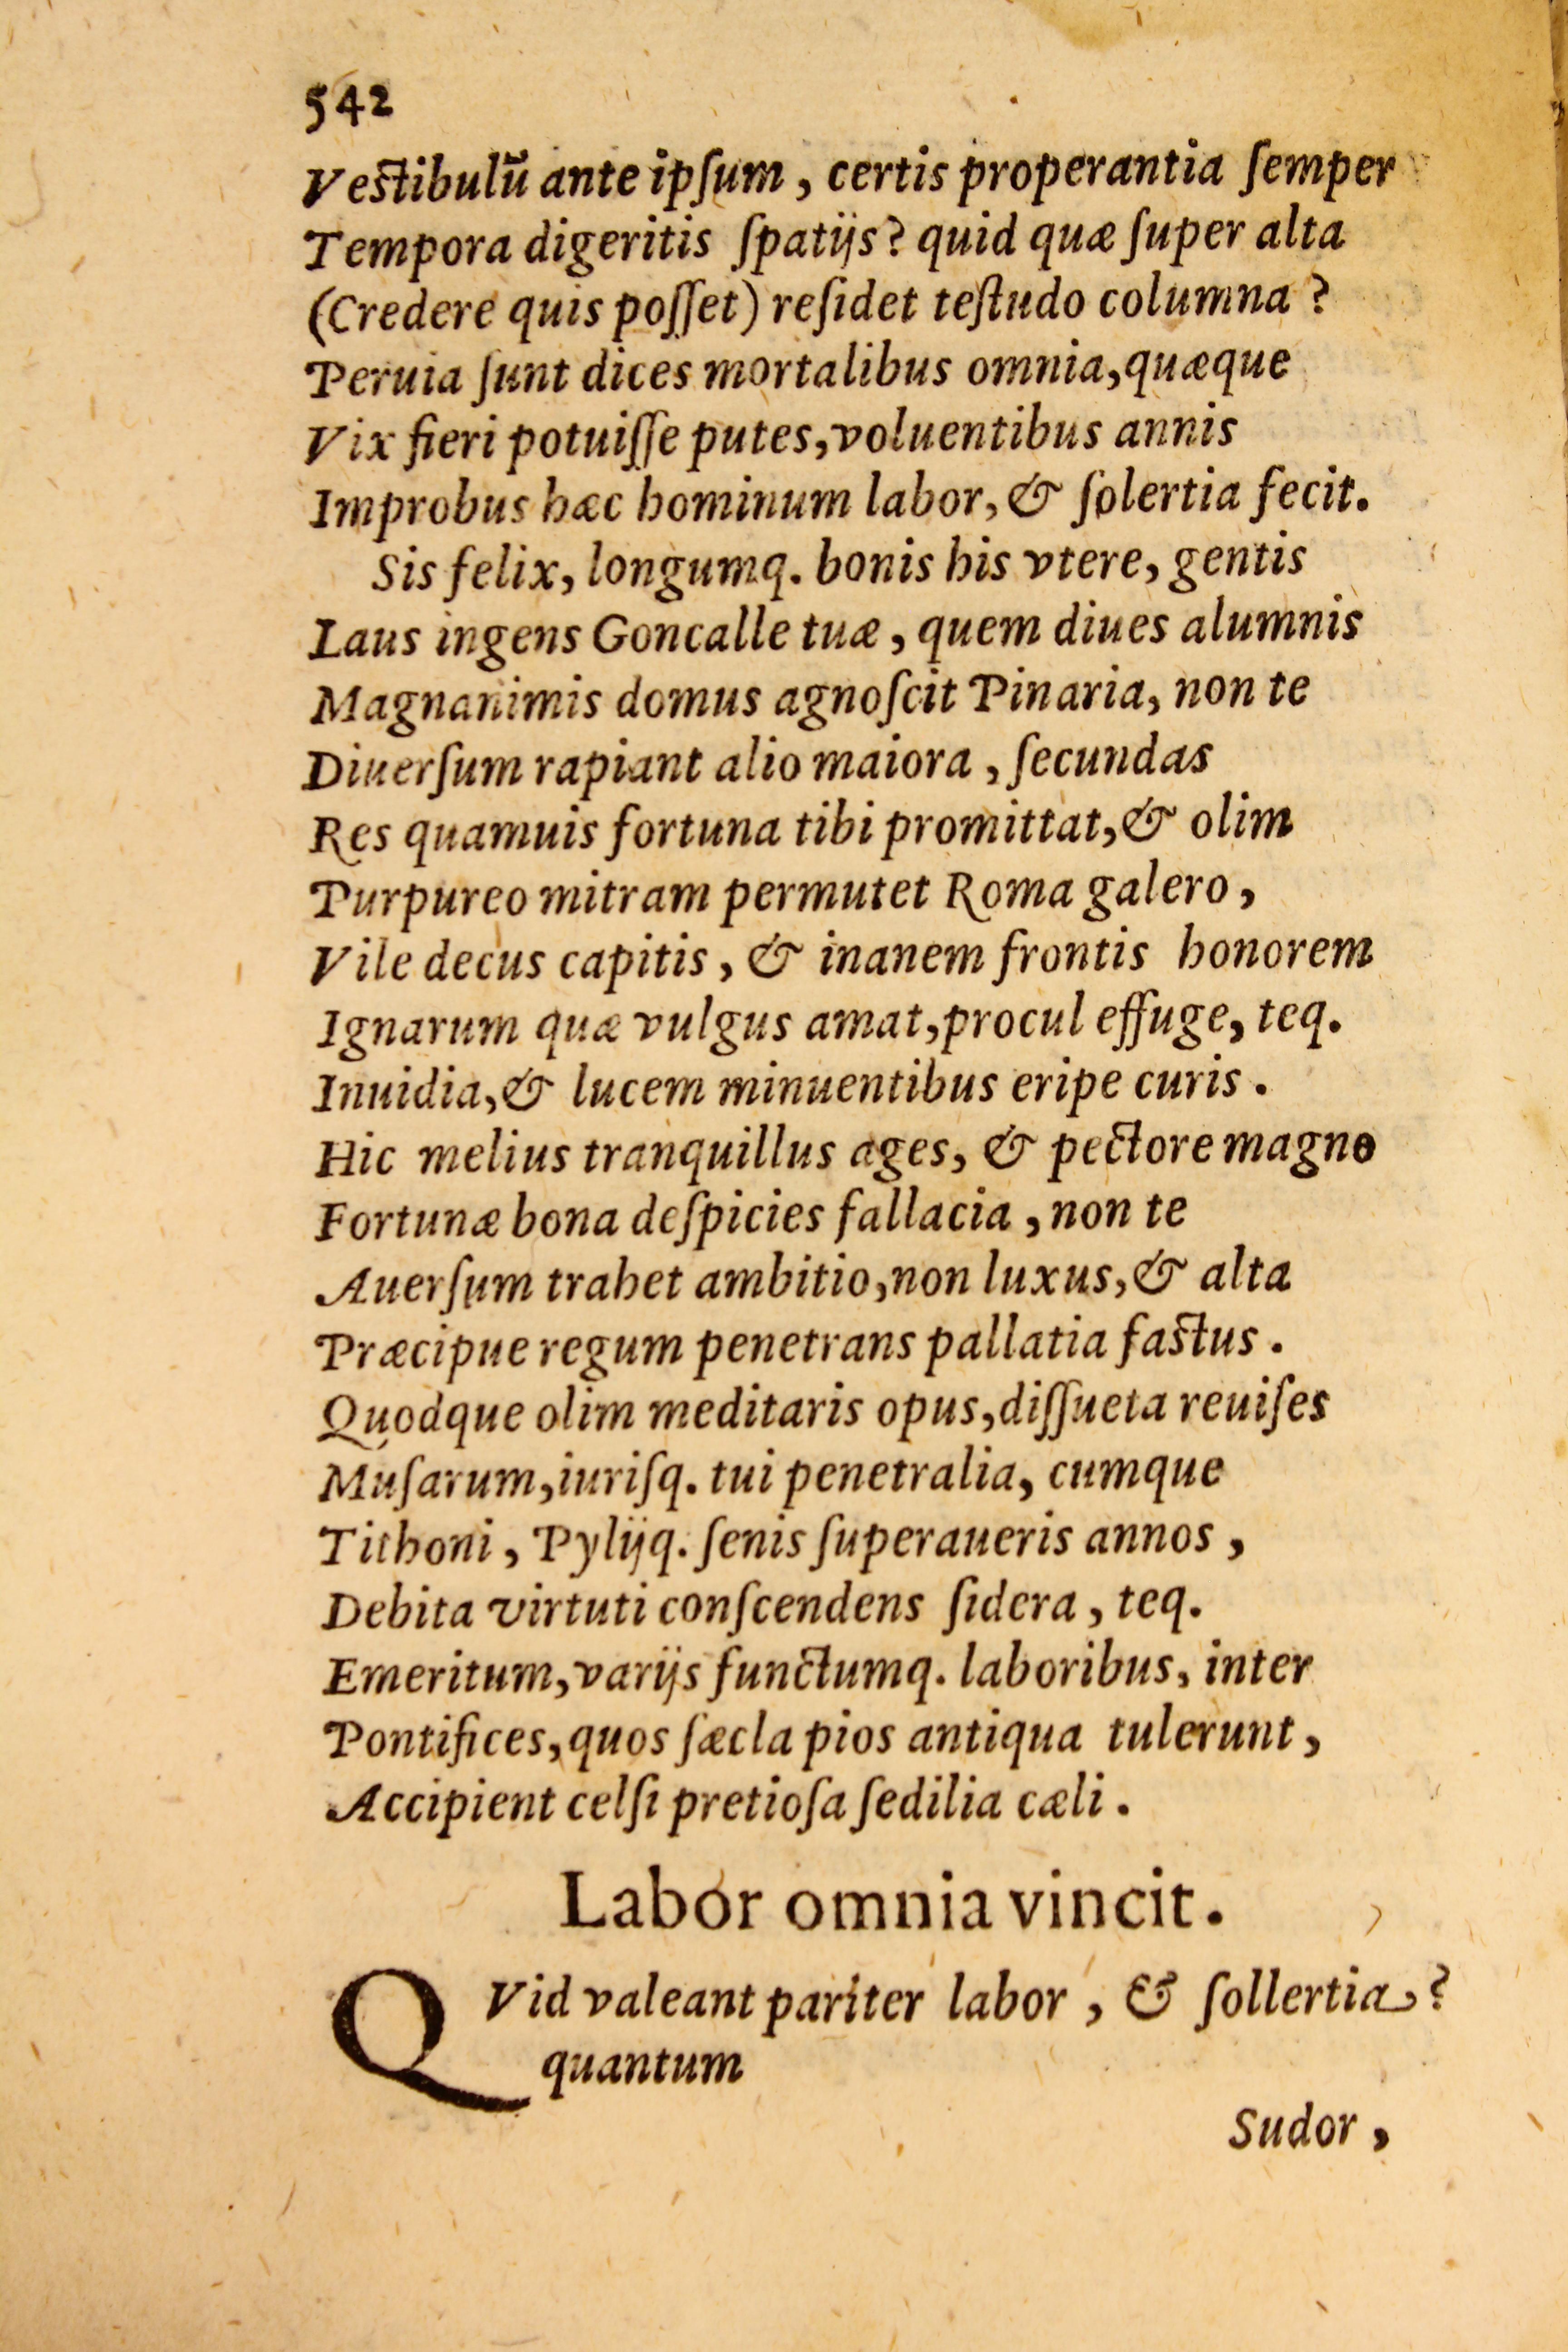 542
Vestibulũ ante ipſum, certis properantia ſemper
Tempora digeritis ſpatijs? quid quæ ſuper alta
(Credere quis poſſet) reſidet teſtudo columna?
Peruia ſunt dices mortalibus omnia, quæque
Vix fieri potuiſſe putes, voluentibus annis
Improbus hæc hominum labor, & ſolertia fecit.
Sis felix, longumq. bonis his vtere, gentis
Laus ingens Goncalle tuæ, quem diues alumnis
Magnanimis domus agnoſcit Pinaria, non te
Diuerſum rapiant alio maiora, ſecundas
Res quamuis fortuna tibi promittat, & olim
Purpureo mitram permutet Roma galero,
Vile decus capitis, & inanem frontis honorem
Ignarum quæ vulgus amat, procul effuge, teq.
Inuidia, & lucem minuentibus eripe curis.
Hic melius tranquillus ages, & pectore magno
Fortunæ bona deſpicies fallacia, non te
Auerſum trahet ambitio, non luxus, & alta
Præcipue regum penetrans pallatia faſtus.
Quodque olim meditaris opus, diſſueta reuiſes
Muſarum, iuriſq. tui penetralia, cumque
Tithoni, Pylijq. ſenis ſuperaueris annos,
Debita virtuti conſcendens ſidera, teq.
Emeritum, varijs functumq. laboribus, inter
Pontifices, quos ſæcla pios antiqua tulerunt,
Accipient celſi pretioſa ſedilia cæli.
Labor omnia vincit.
QVid valeant pariter labor, & ſollertia?
quantum
Sudor,